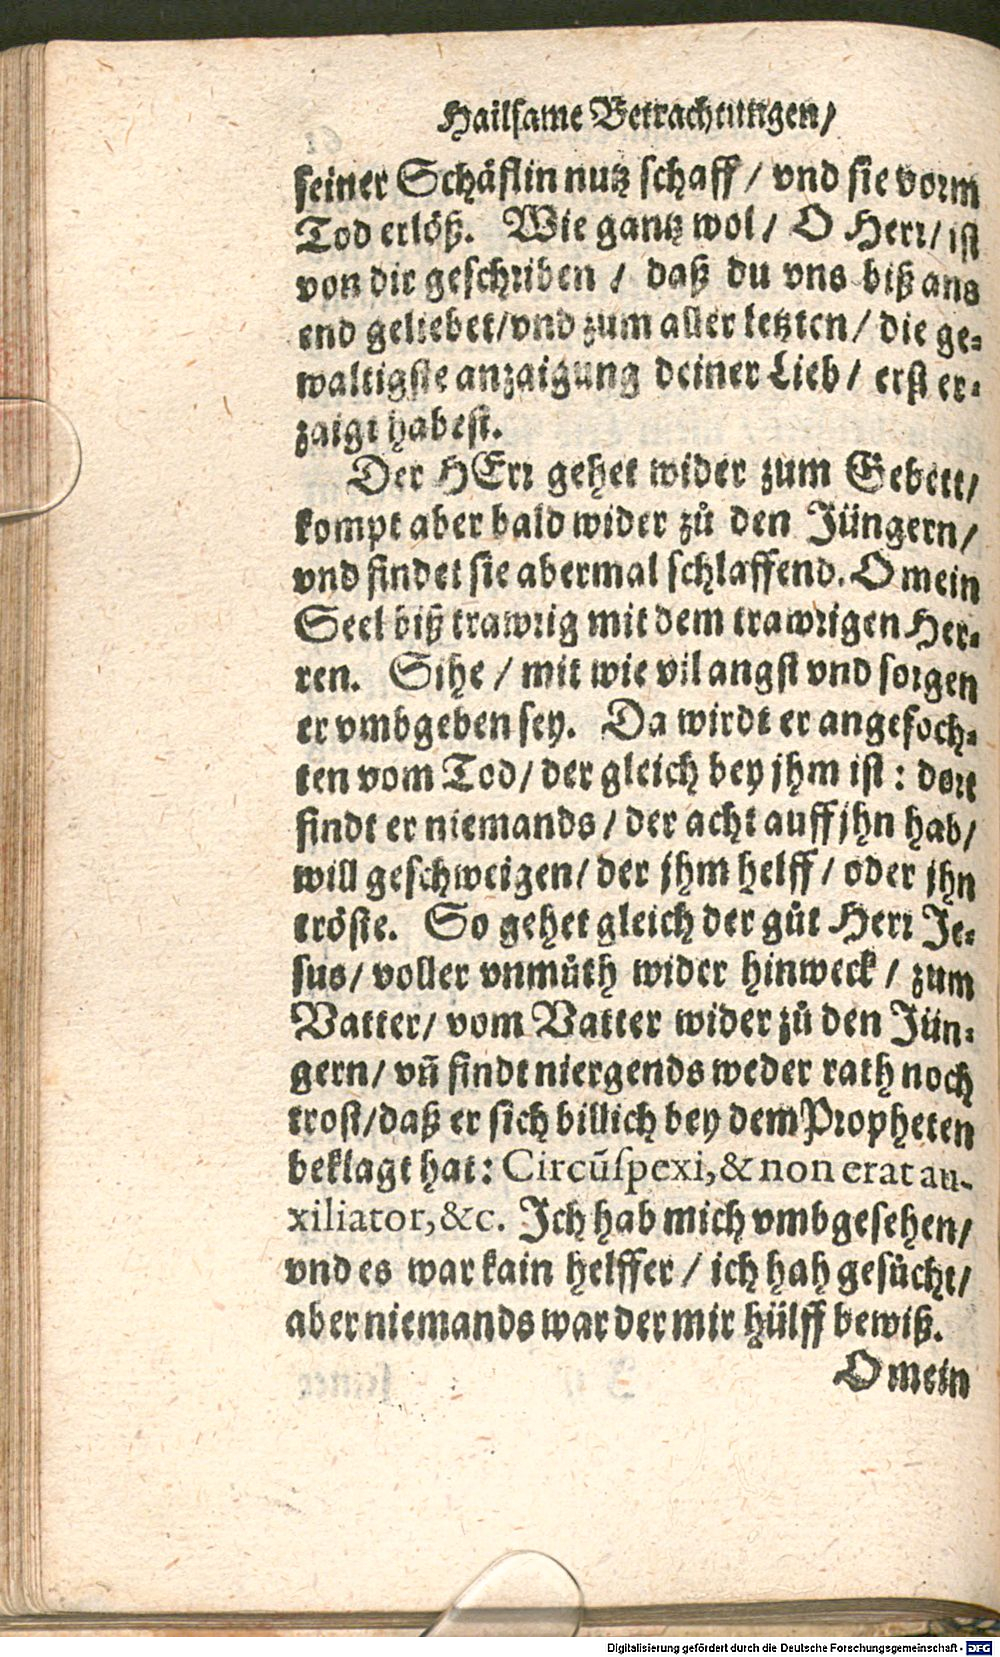 Hailsame Betrachtungen/
seiner Schäflin nutz schaff / vnd sie vorm
Tod erlöß. Wie gantz wol / O Herr/ ist
von dir geschriben / daß du vns biß ans
end geliebet/vnd zum aller letzten/ die ge-
waltigste anzaigung deiner Lieb / erst er-
zaigt habest.
Der HErr gehet wider zum Gebett/
kompt aber bald wider zů den Jüngern/
vnd findet sie abermal schlaffend. O mein
Seel biß trawrig mit dem trawrigen Her-
ren. Sihe / mit wie vil angst vnd sorgen
er vmbgeben sey. Da wirdt er angefoch-
ten vom Tod/ der gleich bey jhm ist : dort
findt er niemands / der acht auff jhn hab/
will geschweigen/ der jhm helff / oder jhn
tröste. So gehet gleich der gůt Herr Je-
sus/ voller vnmůth wider hinweck / zum
Vatter/ vom Vatter wider zů den Jün-
gern/ vñ findt niergends weder rath noch
trost/daß er sich billich bey dem Propheten
beklagt hat: Circũspexi,& non erat au-
xiliator,&c. Ich hab mich vmbgesehen/
vnd es war kain helffer / ich hah gesůcht/
aber niemands war der mir hülff bewiß.
O mein
Digitalisierung gefördert durch die Deutsche Forschungsgemeinschaft - DFG